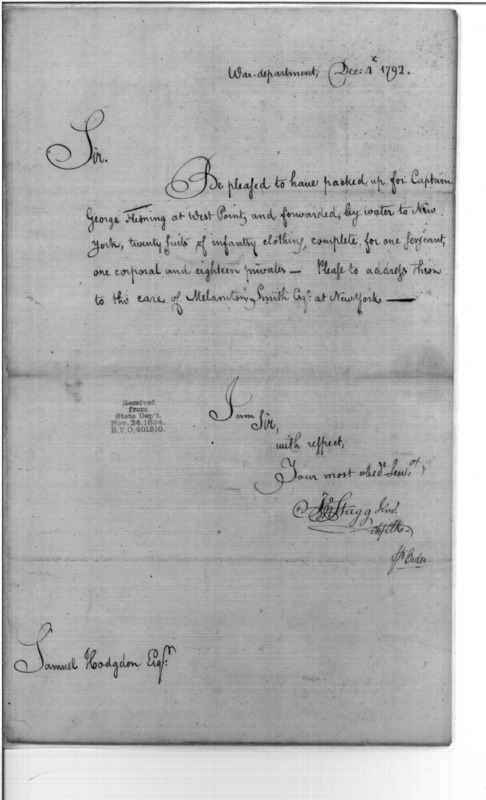 War-department, Dec: 4th 1792.
Sir.
Be pleased to have packed up for Captain
George Fleming at West Point, and forwarded, by water to New
York, twenty suits of infantry clothing, complete, for one serjeant,
one corporal and eighteen privates — Please to address them
to the care of Melancton Smith Esqr. at New York —
Received
from
State Dep't.
Nov. 24, 1894.
R.P.O. 401910.
I am Sir,
with respect,
Your most obedt. Servt.
Jno Stagg Junr.
Chf Clk.
Samuel Hodgdon Esqr.